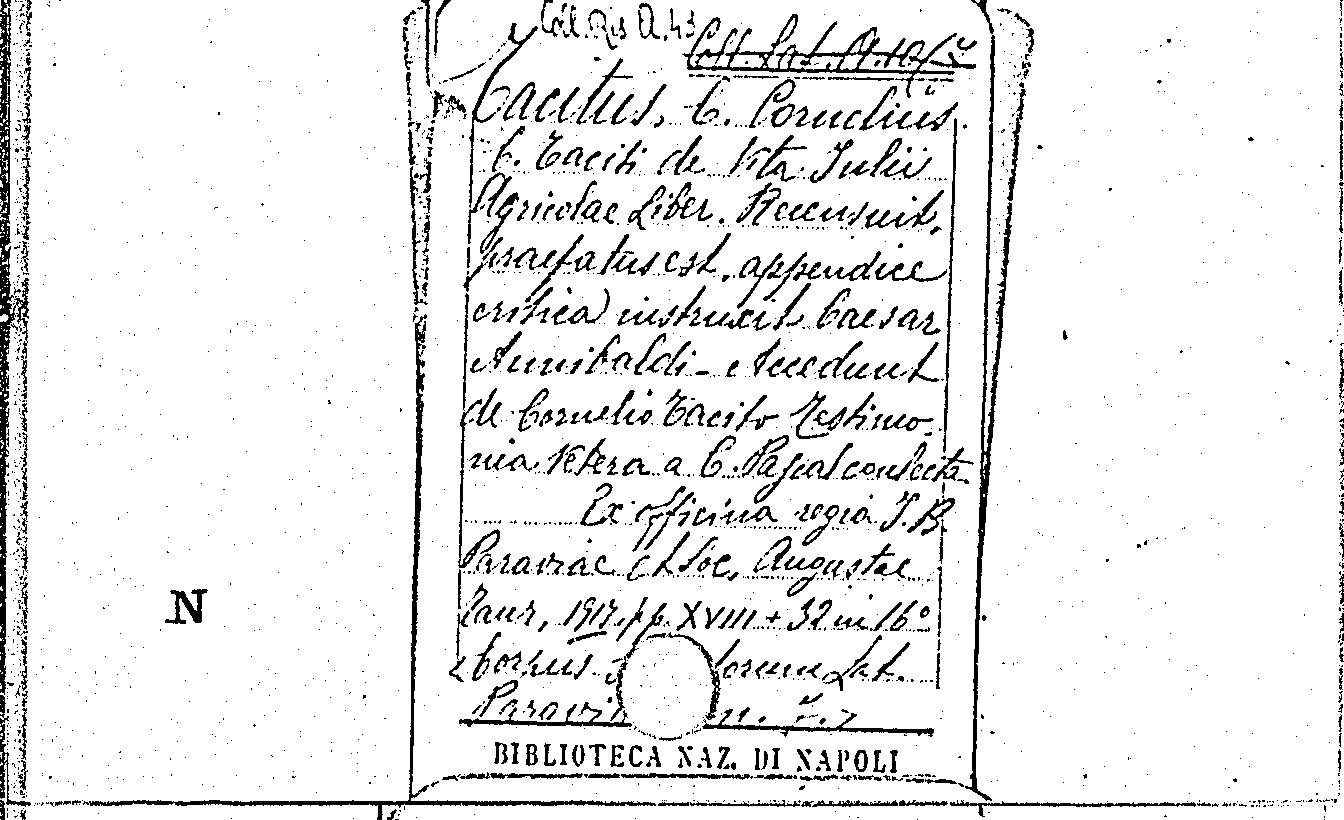 Coll. Ris A. 43
Coll. Lat. A.
Tacitus, C. Cornelius
C. Taciti de Vita Julii
Agricolae Liber. Recensuit,
praefatus est, appendice
critica instruxit Caesar
Annibaldi - Accedunt
de Cornelio Tacito Testimo-
nia Vetera a C. Pascal conlecta
Ex officina regia J. B.
Paraviae et Soc, Augustae
Taur, 1917. pp. XVIII + 32 in 16°
Corpus orum Lat.
N
BIBLIOTECA NAZ. DI NAPOLI